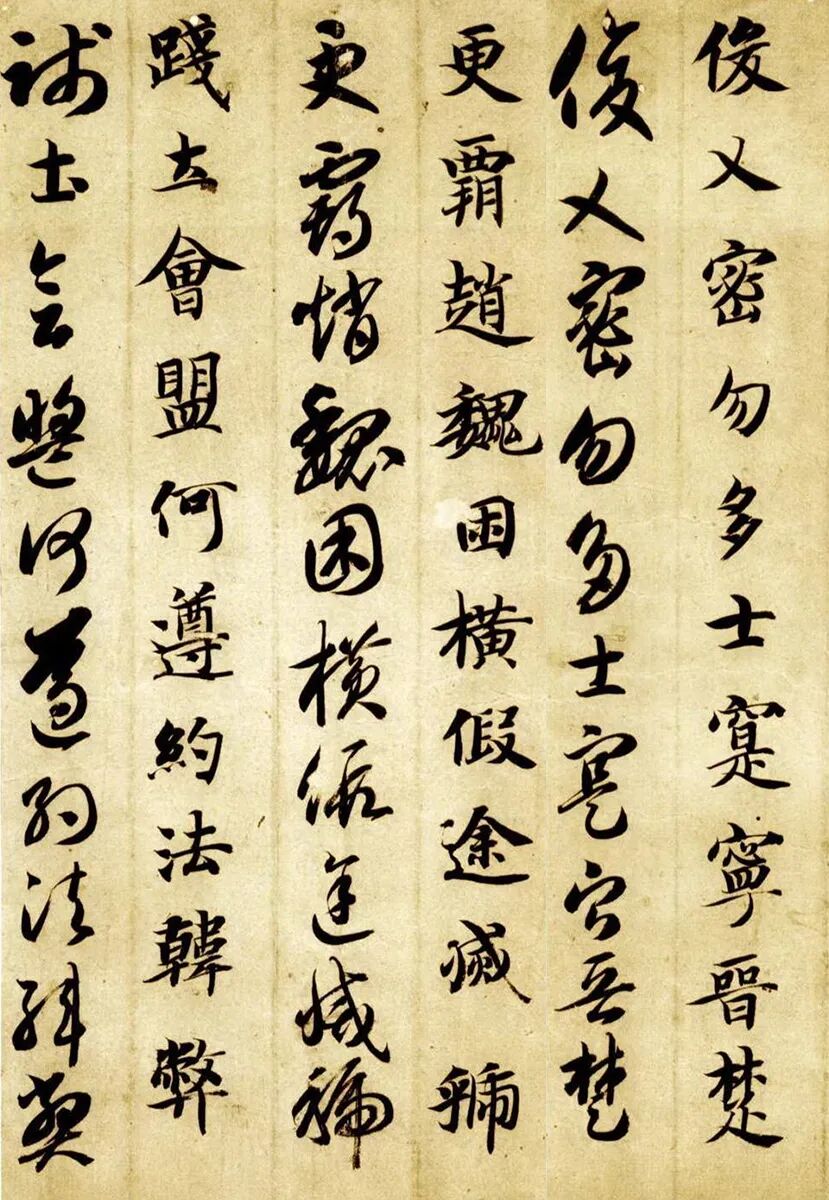 俊乂密勿多士寔寧晉楚
俊乂密勿多士寔寧晉楚
更霸趙魏困橫假途滅虢
更霸趙魏困橫假途滅虢
踐土會盟何遵約法韓弊
踐土會盟何遵約法韓弊